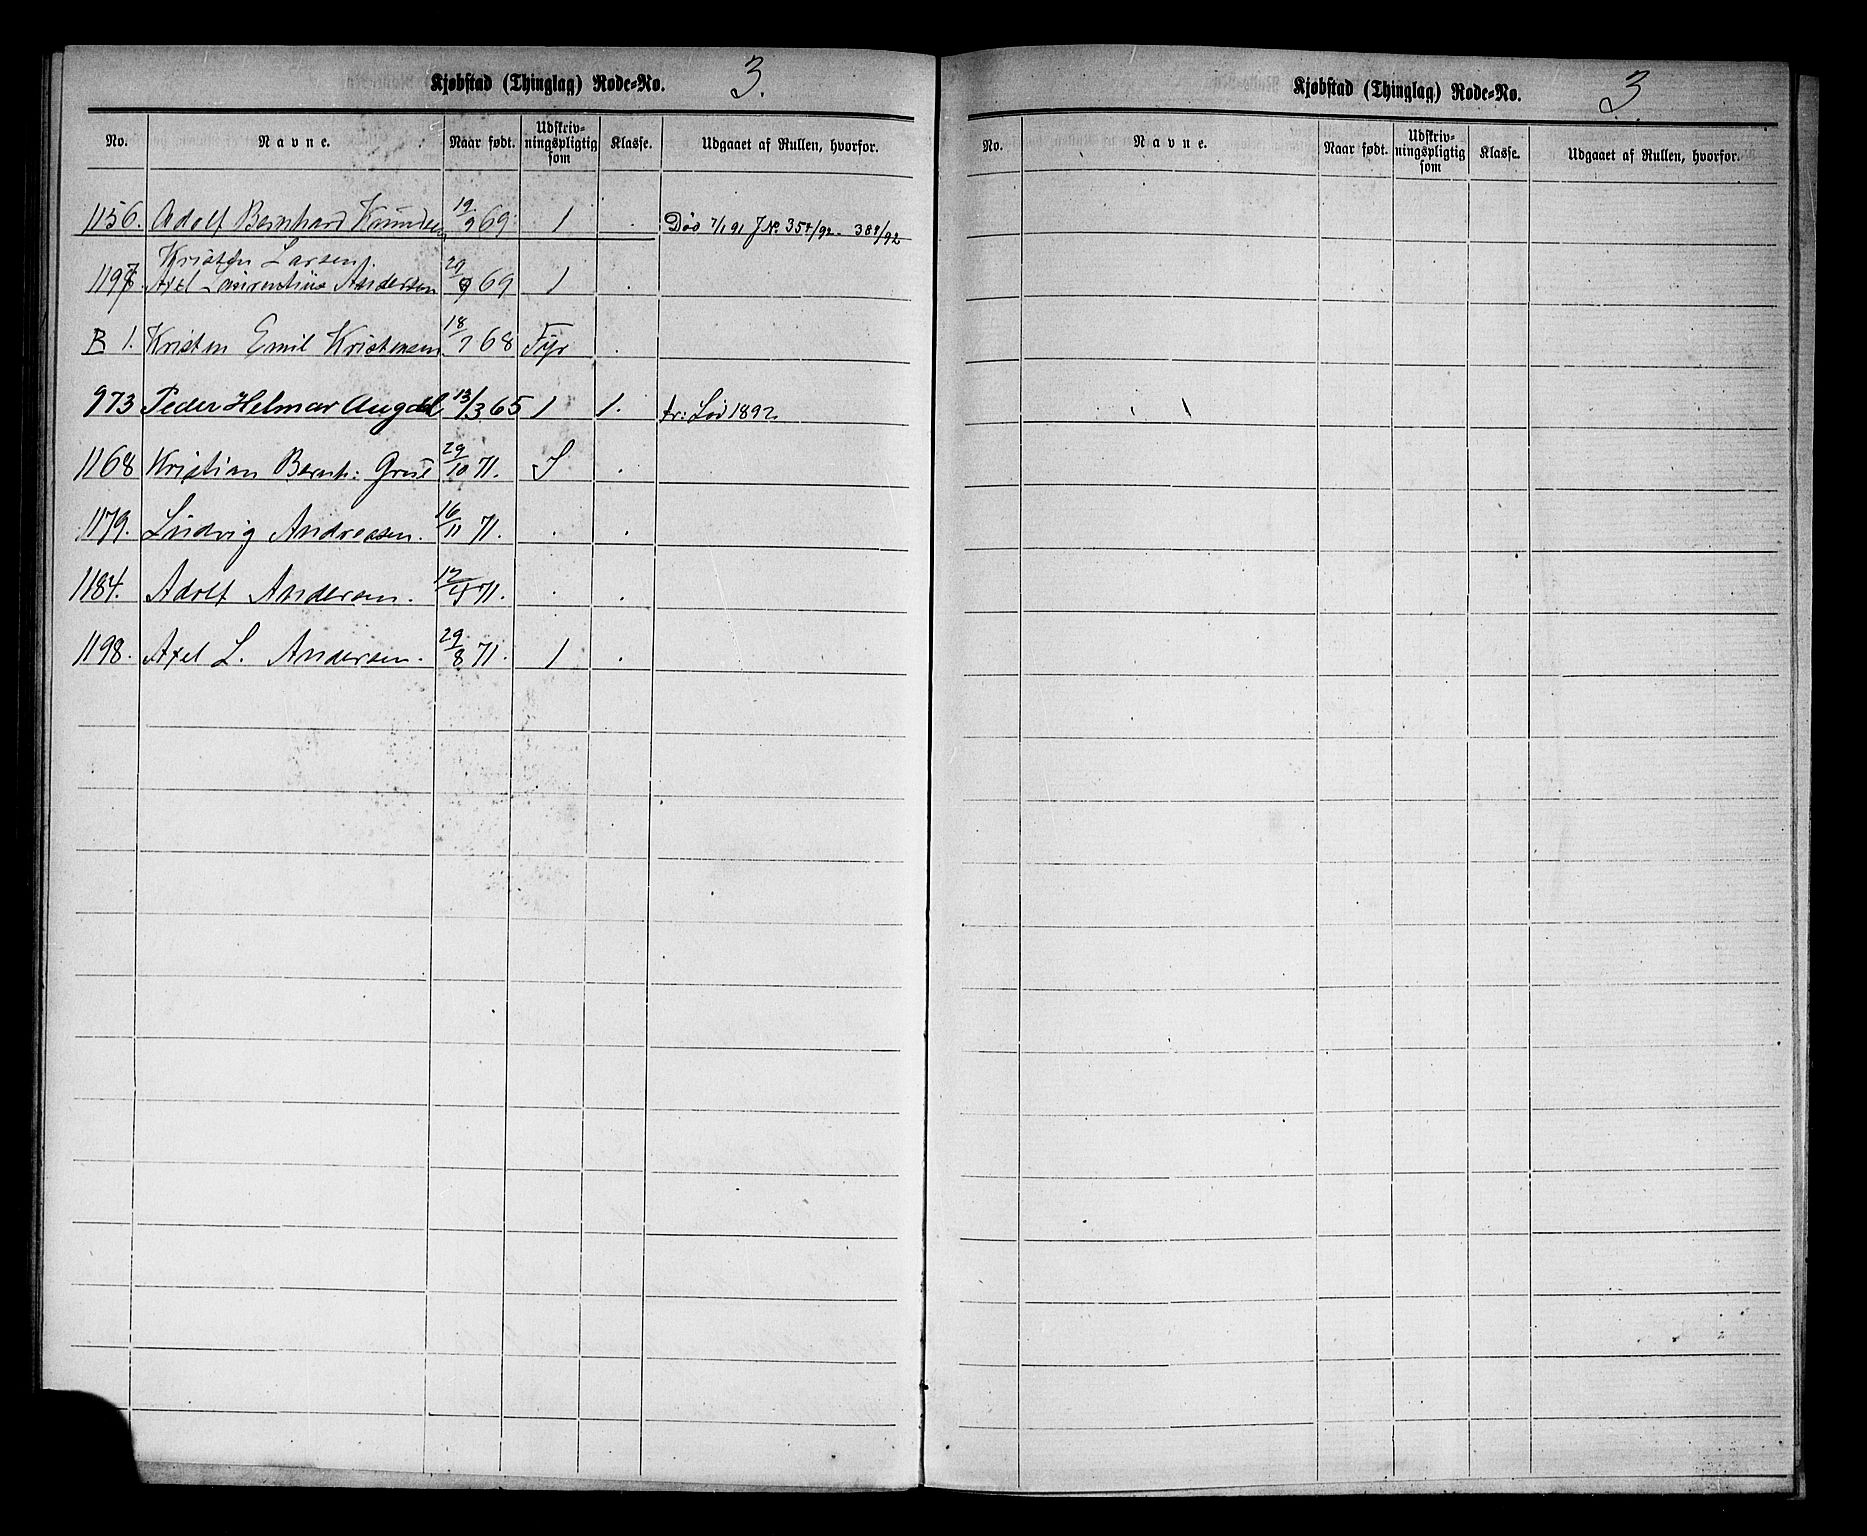 Kjøbstad (Thinglag) Rode-No. 3.
No. Navne. Naar født. Udskriv-ningspligtig som Klasse. Udgaaet af Rullen, hvorfor.
1156. Adolf Bernhard Knudsen 19/9 69 1 . Død 7/1 91 J No. 354/92 - 384/92
Kristen Larsen
1197. Axel Laurentius Andersen 69 1 .
B 1. Kristen Emil Kristensen 18/7 68 Fyr .
973 Peder Helmar Augdal 13/3 65 1 1. fr: Lod 1892
1168 Kristian Bernh: 29/10 71. S .
1179. Ludvig Andreasen. 16/11 71. . .
1184. Adolf Andersen. 71. . .
1198. Axel L. Andersen. 29/8 71. 1 .
Kjøbstad (Thinglag) Rode-No. 3.
No. Navne. Naar født. Udskriv-ningspligtig som Klasse. Udgaaet af Rullen, hvorfor.